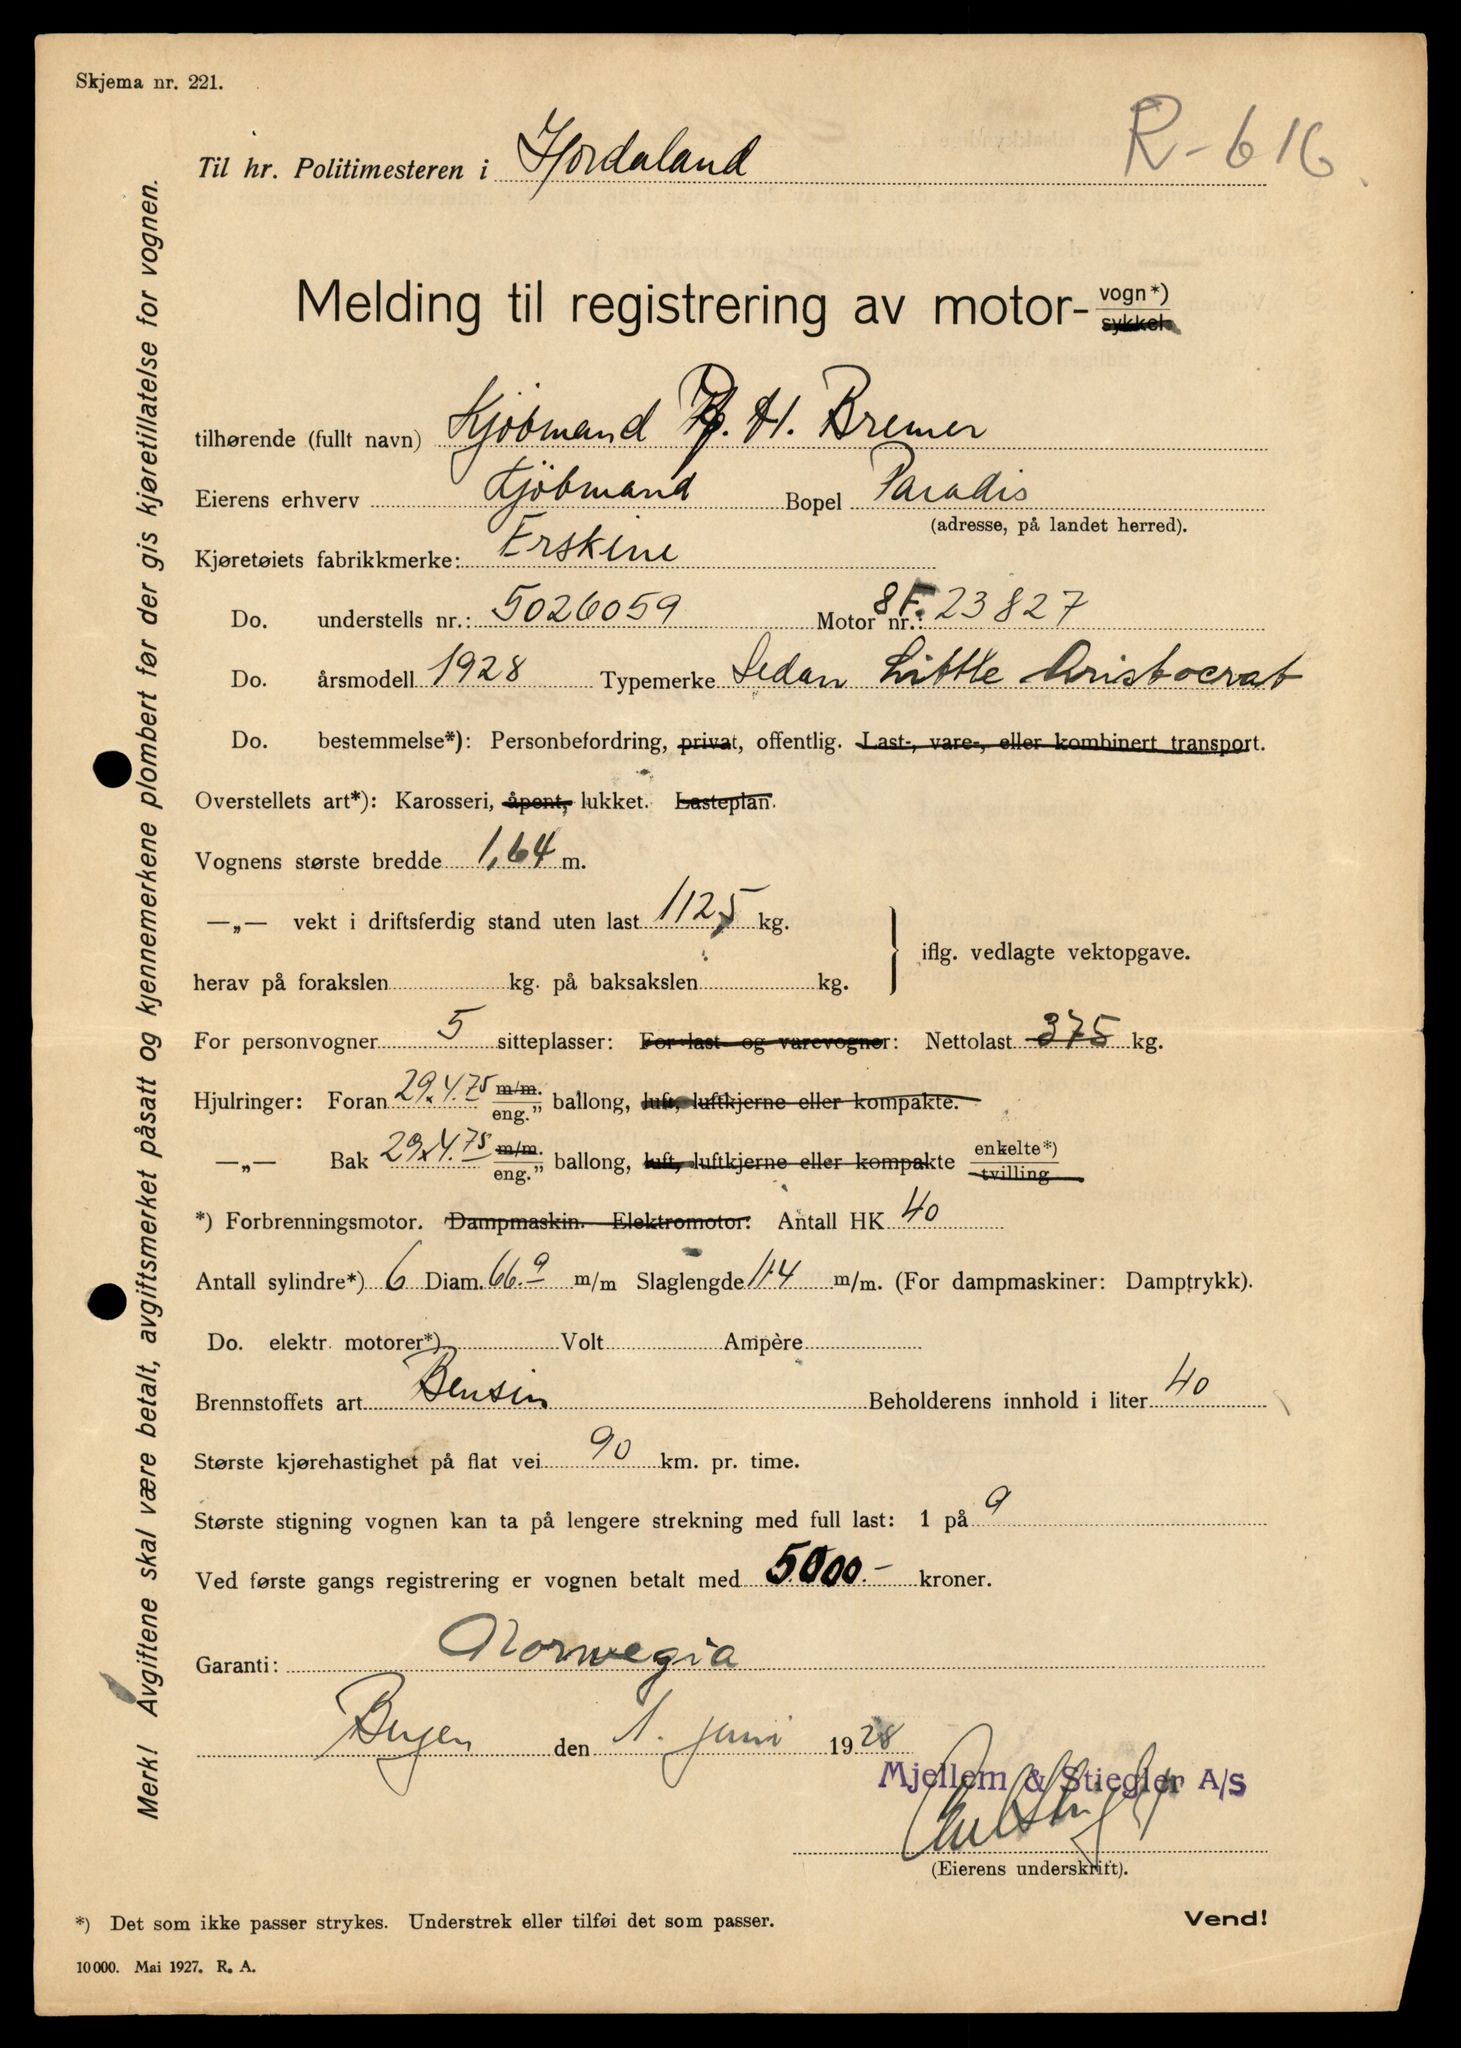 Skjema nr. 221.
R-616
Til hr. Politimesteren i Hordaland
Melding til registrering av motor- vogn*) sykkel
tilhørende (fullt navn) Kjöbmand H. Bremer
Eierens erhverv Kjöbmand Bopel Paradis
(adresse, på landet herred).
Kjøretøiets fabrikkmerke: Erskine
Do. understells nr.: 5026059 Motor nr.: 8F. 23827
Do. årsmodell 1928 Typemerke Sedan Little Aristocrat
Do. bestemmelse*): Personbefordring, privat, offentlig. Last-, vare-, eller kombinert transport.
Overstellets art*): Karosseri, åpent, lukket. Lasteplan.
Vognens største bredde 1,64 m.
—„— vekt i driftsferdig stand uten last 1125 kg.
herav på forakslen kg. på baksakslen kg.
iflg. vedlagte vektopgave.
For personvogner 5 sitteplasser: For last- og varevogner: Nettolast 375 kg.
Hjulringer: Foran 29x4.75 m/m. eng.” ballong, luft, luftkjerne eller kompakte.
—„— Bak 29x4.75 m/m. eng.” ballong, luft, luftkjerne eller kompakte enkelte*) tvilling
*) Forbrenningsmotor. Dampmaskin. Elektromotor. Antall HK 40
Antall sylindre*) 6 Diam. 66.9 m/m Slaglengde 114 m/m. (For dampmaskiner: Damptrykk).
Do. elektr. motorer*) Volt Ampère
Brennstoffets art Bensin Beholderens innhold i liter 40
Største kjørehastighet på flat vei 90 km. pr. time.
Største stigning vognen kan ta på lengere strekning med full last: 1 på 9
Ved første gangs registrering er vognen betalt med 5000.- kroner.
Garanti: Norwegia
Bergen den 1. juni 1928
Mjellem & Stiegler A/S
(Eierens underskrift).
*) Det som ikke passer strykes. Understrek eller tilføi det som passer.
Vend!
10000. Mai 1927. R. A.
Merk! Avgiftene skal være betalt, avgiftsmerket påsatt og kjennemerkene plombert før der gis kjøretillatelse for vognen.